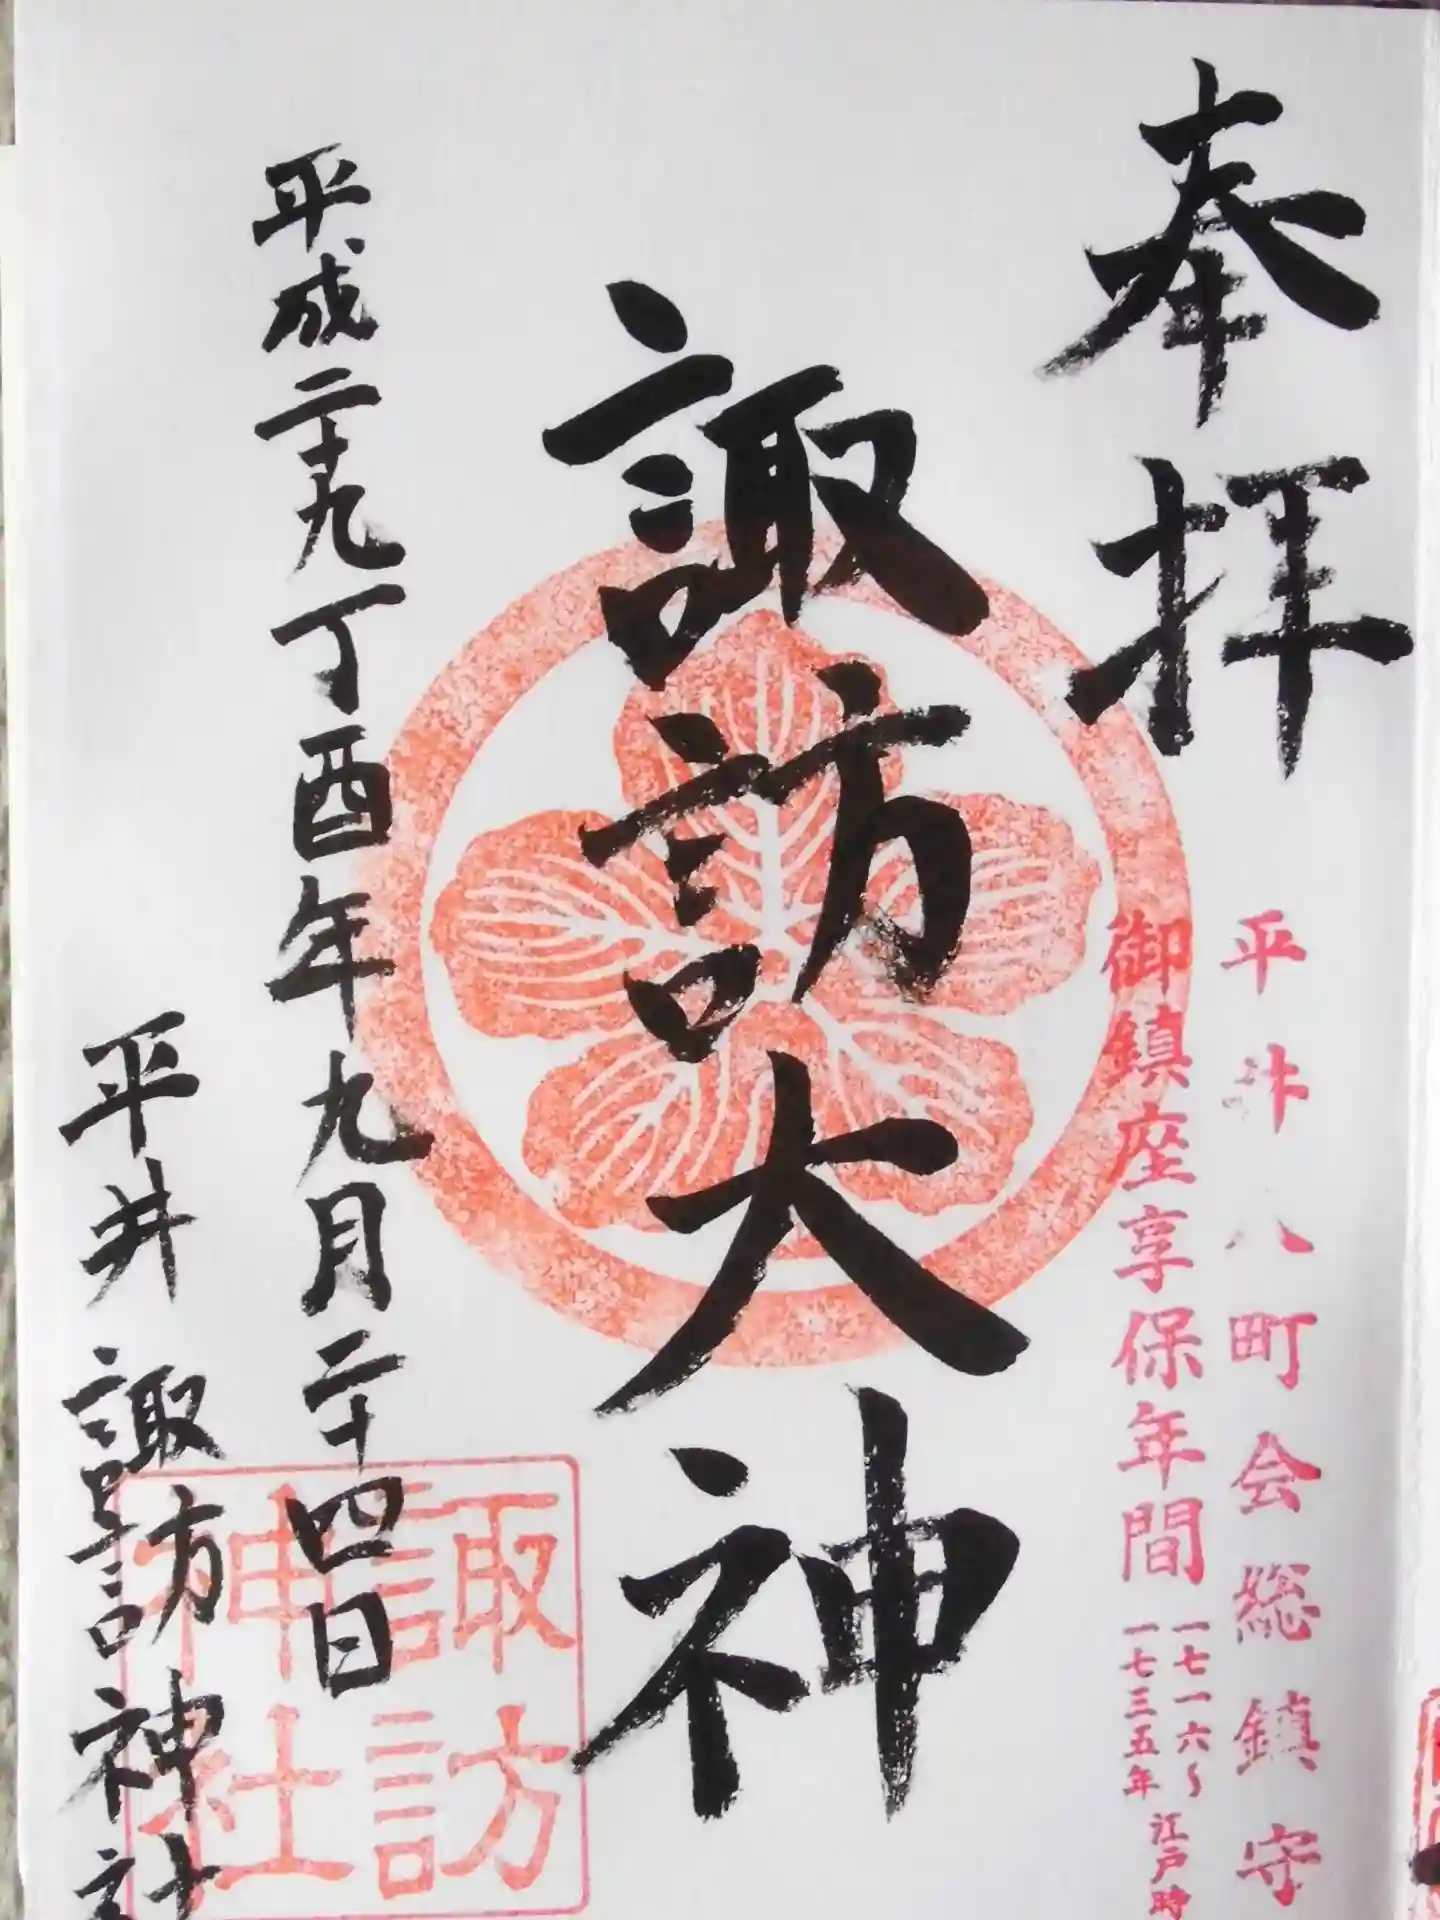 奉拝
平井八町会総鎮守
御鎮座享保年間
一七一六～
一七三五年
江戸時
諏訪大神
平成二十九丁酉年九月二十四日
平井諏訪神社
諏訪
神社